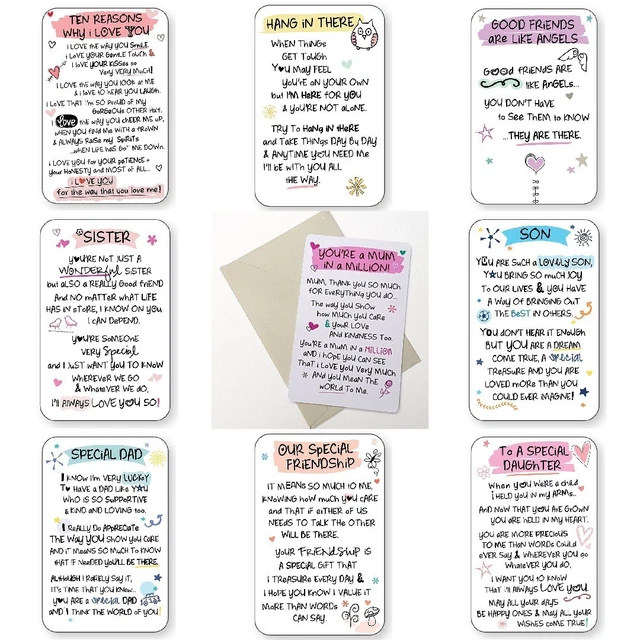 TEN REASONS
WHY i LOVE YOU
I LOVE the WAY YOU SMiLE
I LOVE YOUR GENTLE TOUCH &
I LOVE YOUR KISSes so
Very VERY MUCH!
I LOVE the WAY YOU LOOK At ME
& I LOVE tO HEAR YOU LAUGH.
I LOVE THAT I'M SO PROUD OF MY
GORGEOUS OTHER HALF.
I Love the WAY YOU CHEER ME UP,
WHEN YOU FIND ME WITH A FROWN
& ALWAYS RAISE MY SPIRITS
...WHEN LIFE HAS GOT ME DOWN.
I LOVE YOU for YOUR PATIENCE +
YOUR HONESTY AND MOST OF ALL...
I LOVE YOU
for the way that you love me!
HANG iN THERE
WHEN THINGS
GET TOUGH
YOU MAY FEEL
YOU'RE ON YOUR OWN
but I'M HeRe FOR YOU
& YOU'RE NOT ALONE.
TRY To HANG iN tHeRe
and TAKE THINGS DAY By DAY
& ANYTIME YOU NEED Me
I'll be WiTH YOU ALL
THE WAY.
GOOD FRIENDS
aRe LIKE ANGELS
GOOD FRIENDS ARE
LIKE ANGELS...
YOU DON'T HAVE
to See THEM to KNOW
...THEY ARE THERE.
SISTER
YOU'RE NOT JUST A
WONDERFUL SISTER
but ALSO a REALLY Good friend
AND NO MATTER WHAT LIFE
HAS IN STORE, I KNOW ON YOU
I CAN DEPEND.
YOU'RE SOMEONE
VERY Special
and I JUST WANT YOU TO KNOW
WHEREVER WE GO
& WHATEVER WE DO,
I'll ALWAYS LOVE YOU SO!
YOU'RE A MUM
IN A MILLION!
MUM, THANK YOU SO MUCH
FOR EVERYTHING YOU DO...
THE WAY YOU SHOW
HOW MUCH YOU CARE
& YOUR LOVE
AND KINDNESS TOO.
YOU'RE A MUM IN A MILLION
AND I HOPE YOU CAN SEE
THAT I LOVE YOU VERY MUCH
AND YOU MEAN THE
WORLD To Me.
SON
YOU ARE SUCH A LOVELY SON,
YOU BRING SO MUCH JOY
To OUR LIVES & YOU HAVE
A WAY OF BRINGING OUT
THE BeST IN OTHERS.
YOU DON'T HEAR IT ENOUGH
BUT YOU ARE A DREAM
COME TRUE, A Special
TREASURE AND YOU ARE
LOVED MORE THAN YOU
COULD EVER IMAGINE!
SPECIAL DAD
I KNOW I'M VERY LUCKY
To HAVE A DAD LIKE YOU
WHO IS SO SUPPORTIVE
& KIND AND LOVING TOO.
I REALLY DO APPRECIATE
THE WAY YOU SHOW YOU CARE
AND IT MEANS SO MUCH TO KNOW
THAT IF NEEDED YOU'LL BE THERE.
ALTHOUGH I RARELY SAY IT,
IT'S TIME THAT YOU KNEW...
YOU ARE A Special DAD
AND I THINK THE WORLD OF YOU!
OUR SPeCIAL
FRIENDSHIP
IT MEANS SO MUCH TO ME,
KNOWING HOW MUCH YOU CARE
and THAT IF EITHER OF US
NEEDS TO TALK THE OTHER
WILL BE THERE.
YOUR FRIENDSHIP IS
A SPECIAL GIFT THAT
I TREASURE EVERY DAY &
I HOPE YOU KNOW I VALUE IT
MORE THAN WORDS
CAN SAY.
To A SPECIAL
DAUGHTER
WHEN YOU WERE A CHILD
I HELD YOU IN MY ARMS..
AND NOW THAT YOU ARE GROWN
YOU ARE HELD IN MY HEART.
YOU ARE MORE PRECIOUS
TO ME THAN WORDS COULD
EVER SAY & WHEREVER YOU GO
WHATEVER YOU DO,
I WANT YOU TO KNOW
THAT I'LL ALWAYS LOVE YOU!
MAY ALL YOUR DAYS
BE HAPPY ONES & MAY ALL YOUR
WISHES COME TRUE!